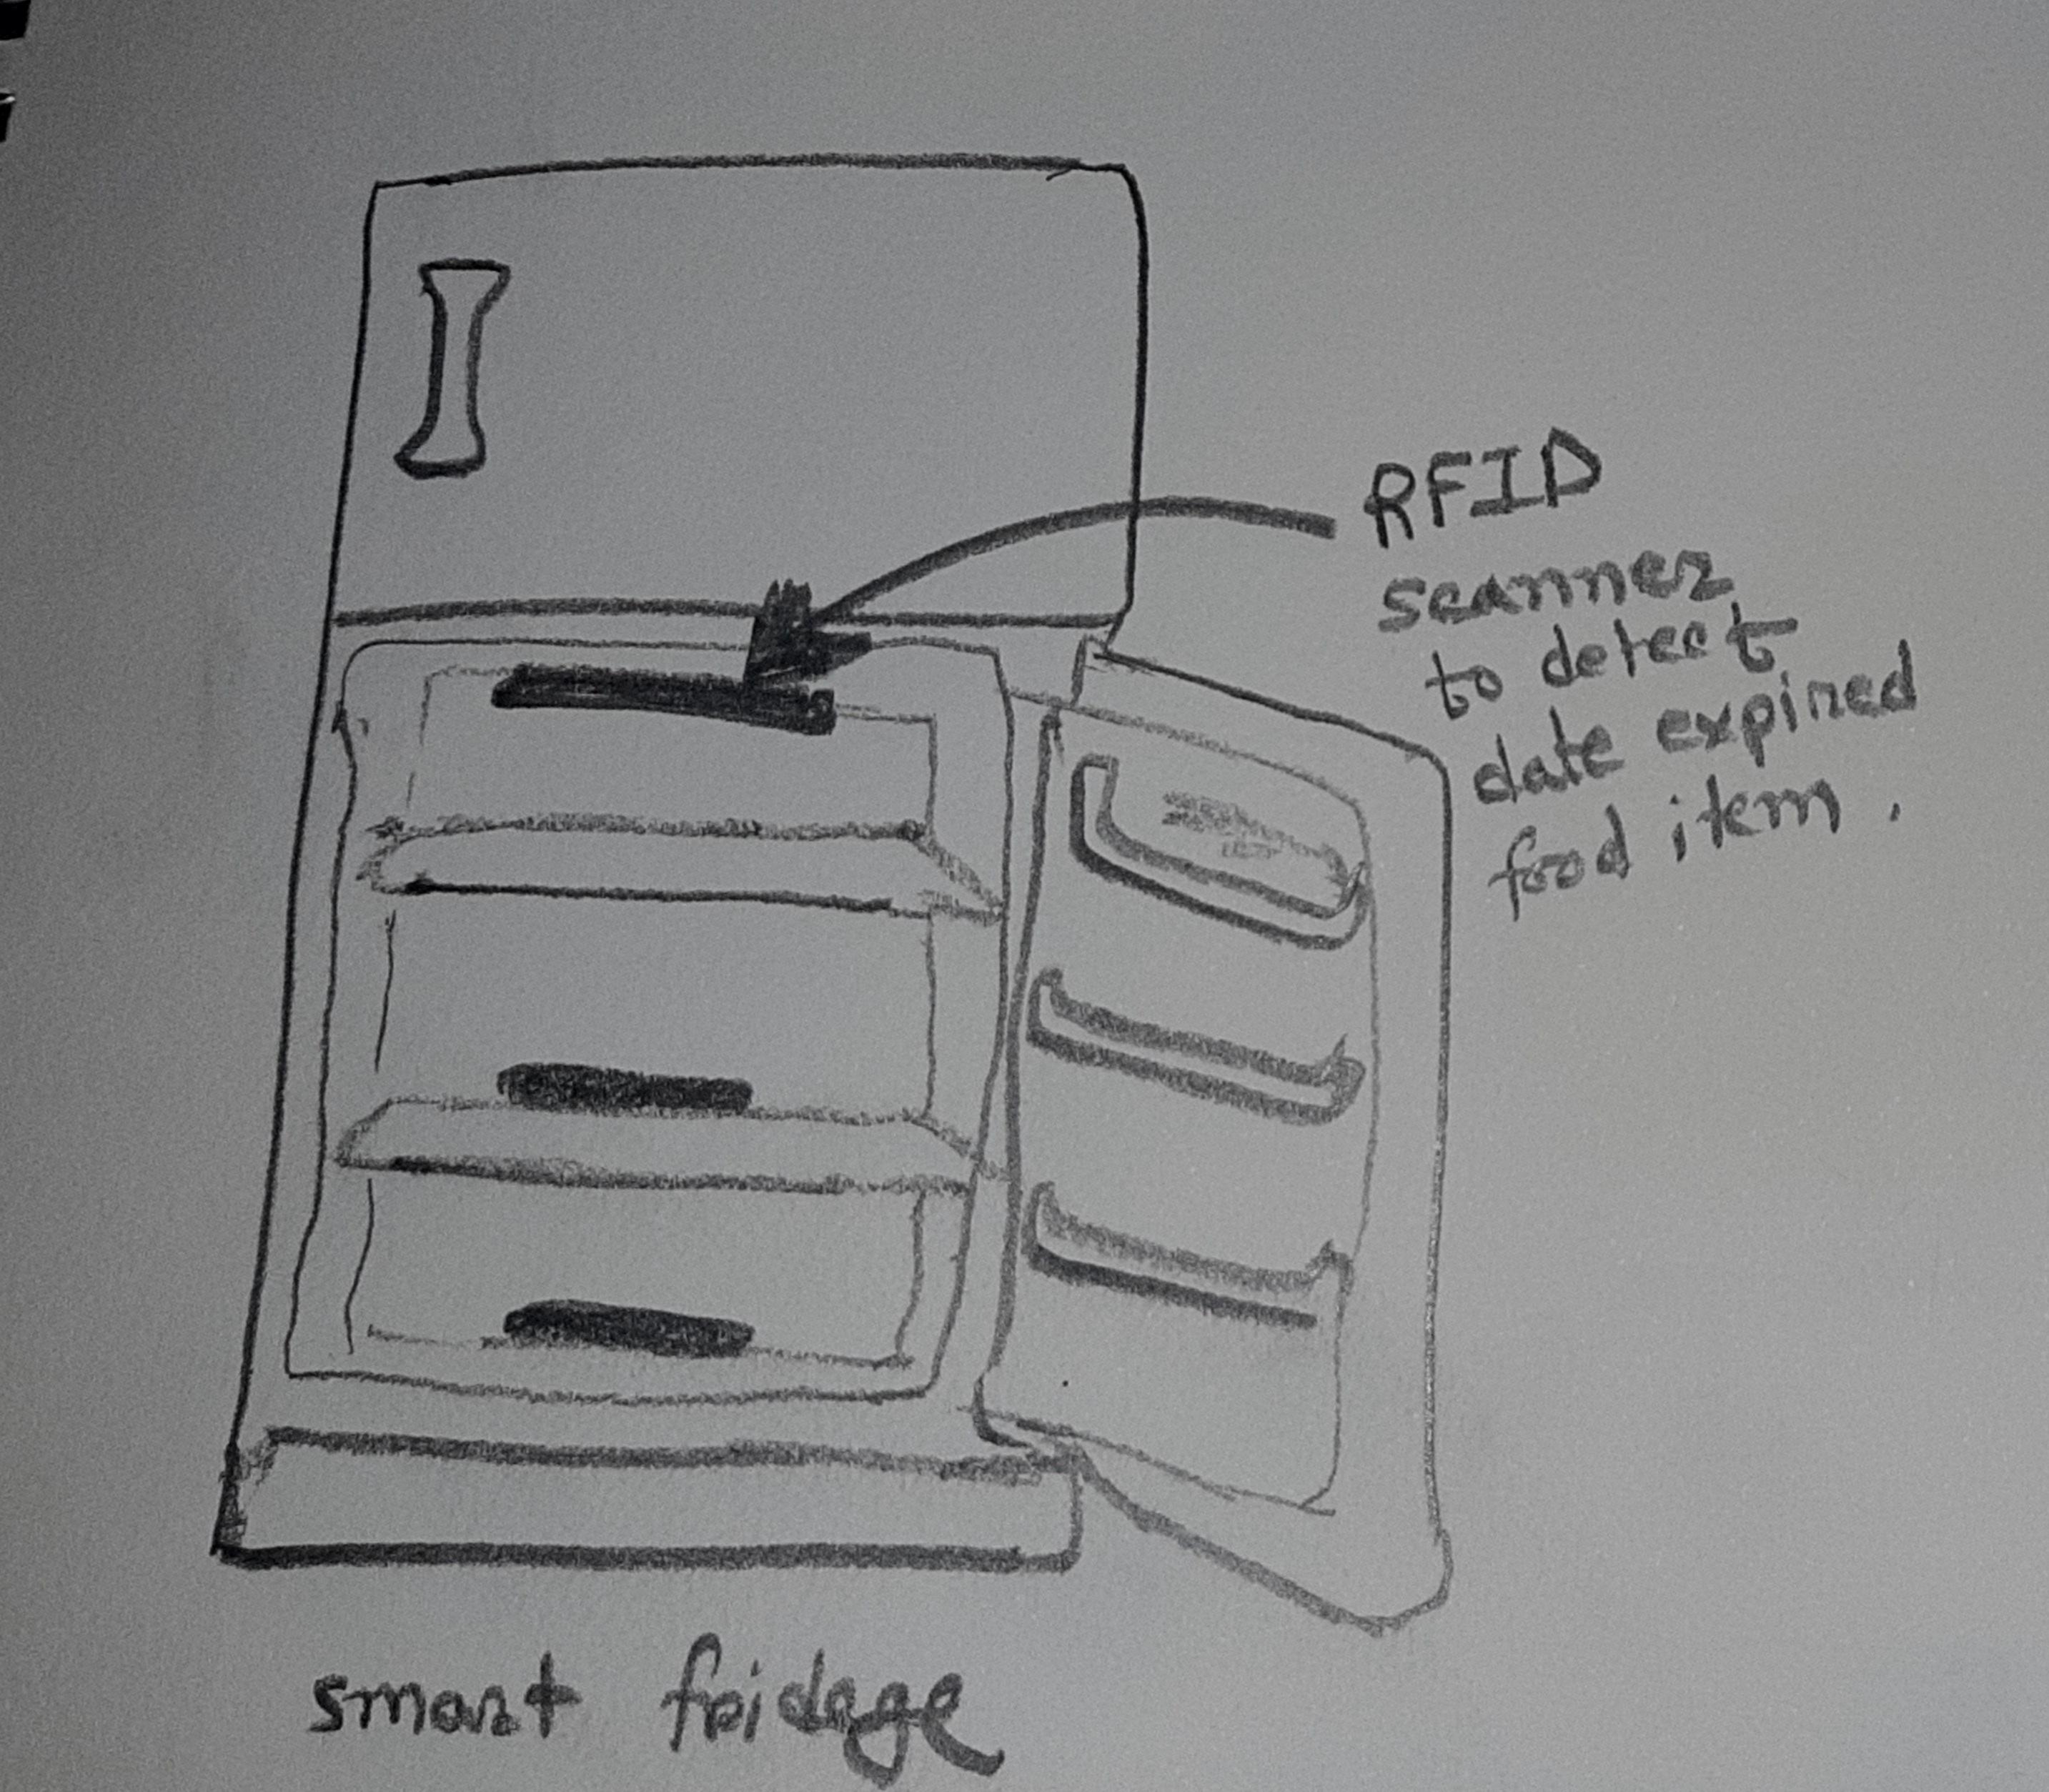 RFID
scanner
to detect
date expired
food item .
smart fridage